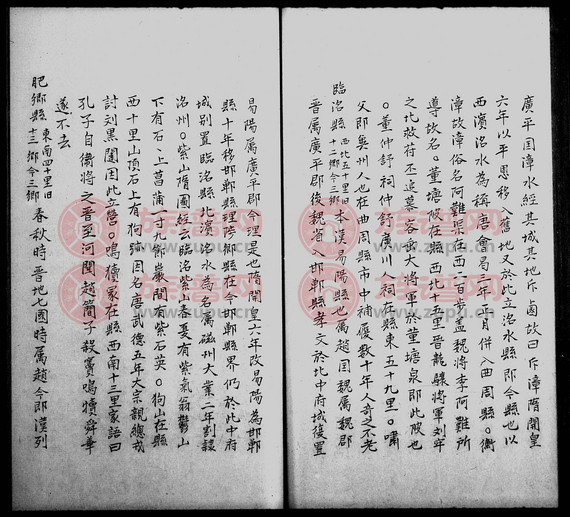 廣平国漳水經其城其地斥鹵故曰斥漳隋開皇
六年以平恩移入舊地又於此立洺水縣即今縣也以
西濱洺水為稱唐會昌三年二月併入曲周縣〇衡
漳故漳俗名阿難渠在西一百步盖魏將李阿難所
導故名〇董塘陂在縣西北十五里晉龍驤將軍刘牢
之比救苻丕追慕容垂大將軍於董塘泉即此陂也
〇董仲舒祠仲舒廣川人祠在縣東五十九里〇嘯
父即兾州人也在曲周縣市中補履数十年人奇之不老
臨洺縣 西北五十里旧十二鄉今三鄉 本漢易陽縣也属趙国魏属魏郡
晉属廣平郡後魏省入邯鄲縣孝文於北中府城復置
易陽属廣平郡今理是也隋開皇六年改易陽為邯鄲
縣十年移邯鄲縣理陟鄉縣在今邯鄲縣界仍於北中府
城别置臨洺縣北濱洺水為名属磁州大業二年割隸
洺州〇紫山隋圖經云臨洺紫山李夏有紫氣翁鬱山
下有石上菖蒲一寸九節嶺間有紫石英〇狗山在縣
西十里山頂石上有狗跡因名唐武德五年太宗親總戎
討刘黑闥因此立營〇鳴犢冢在縣西南十三里家語曰
孔子自衛將之晉至河聞趙簡子殺竇鳴犢舜華
遂不去
肥鄉縣 東南四十里旧十三鄉今三鄉 春秋時晉地七國時属趙今即漢列